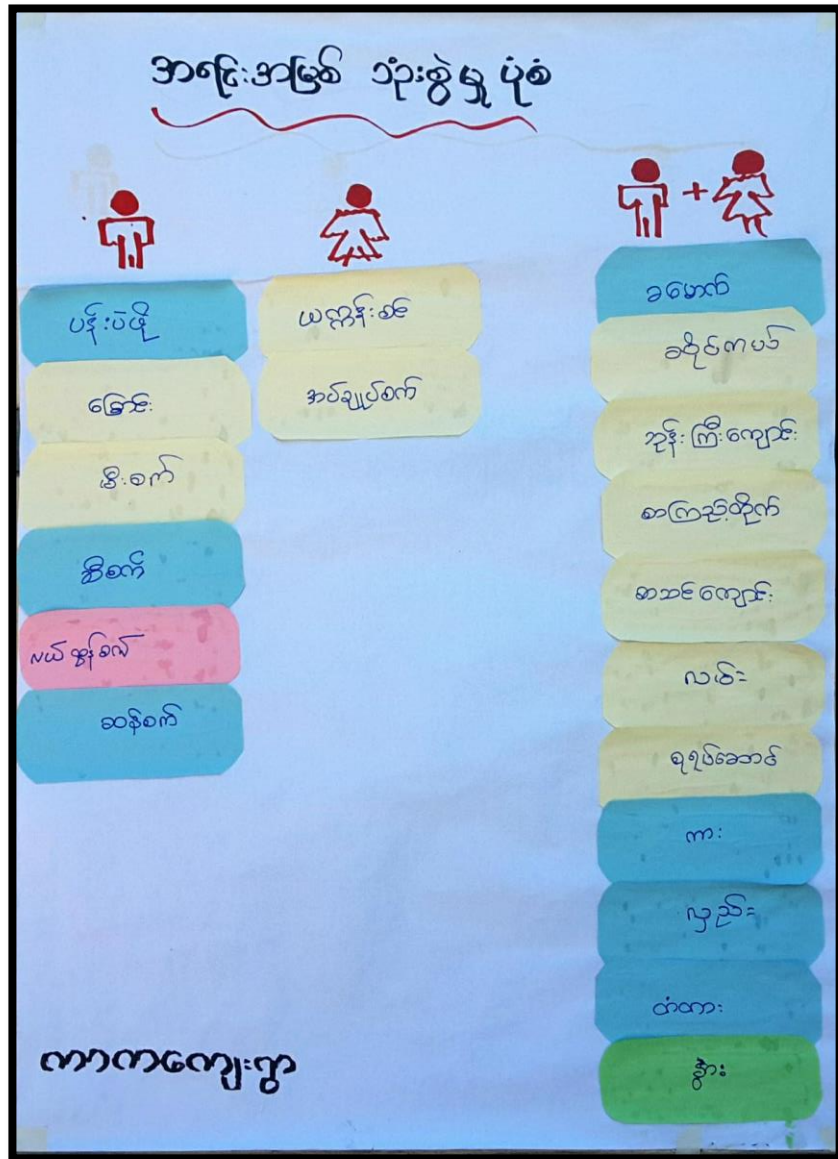 အရင်းအမြစ် သုံးစွဲမှု ပုံစံ
+
ပန်းပဲဖို
ခြောင်း
မီးစက်
ဆီစက်
လယ်ထွန်စက်
ဆန်စက်
ယက္ကန်းစင်
အပ်ချုပ်စက်
ခမောက်
ဘုန်းကြီးကျောင်း
စာကြည့်တိုက်
စာသင်ကျောင်း
လမ်း
ဇရပ်ဆောင်
ကား
လှည်း
တံတား
နွား
ကာကကျေးရွာ